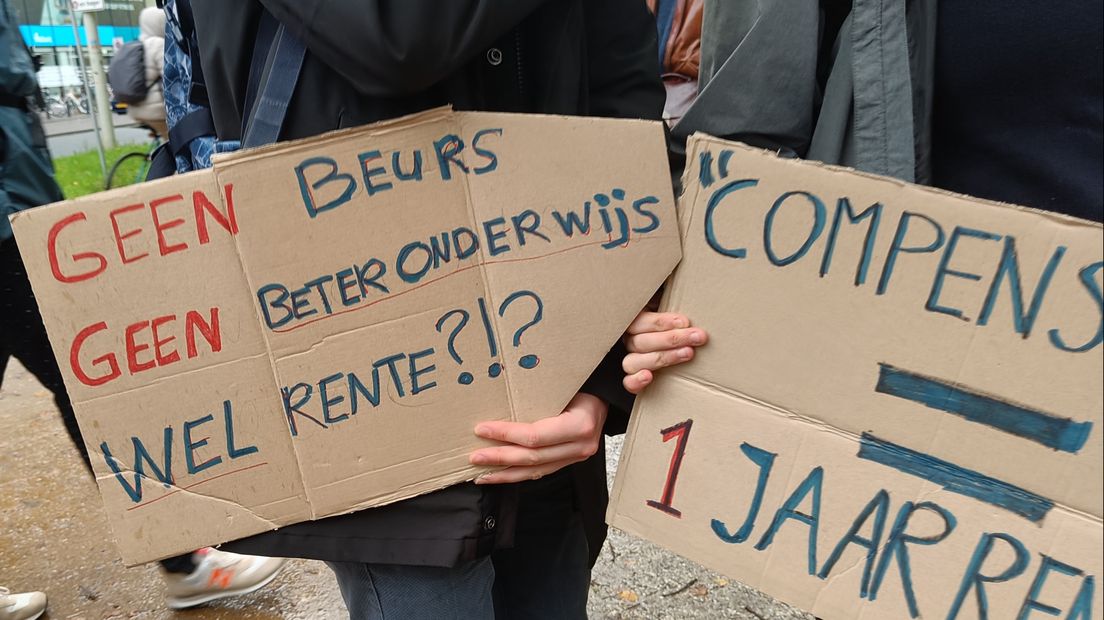 GEEN BEURS
GEEN BETER ONDERWIJS
WEL RENTE?!?
"COMPENS
=
1 JAAR REN